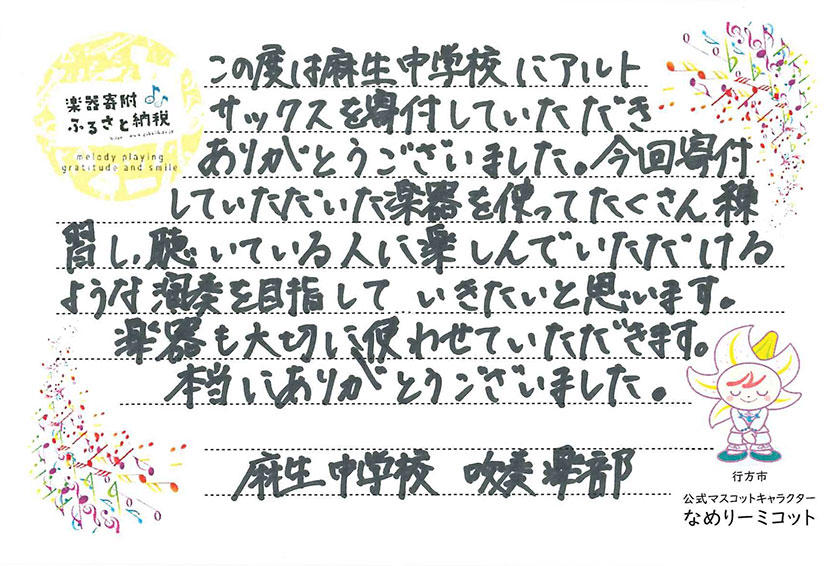 楽器寄附
ふるさと納税
melody playing
gratitude and smile
この度は麻生中学校にアルト
サックスを寄付していただき
ありがとうございました。今回寄付
していただいた楽器を使ってたくさん練
習し、聴いている人に楽しんでいただける
ような演奏を目指して いきたいと思います。
楽器も大切に使わせていただきます。
本当にありがとうございました。
麻生中学校 吹奏楽部
行方市
公式マスコットキャラクター
なめりーミコット